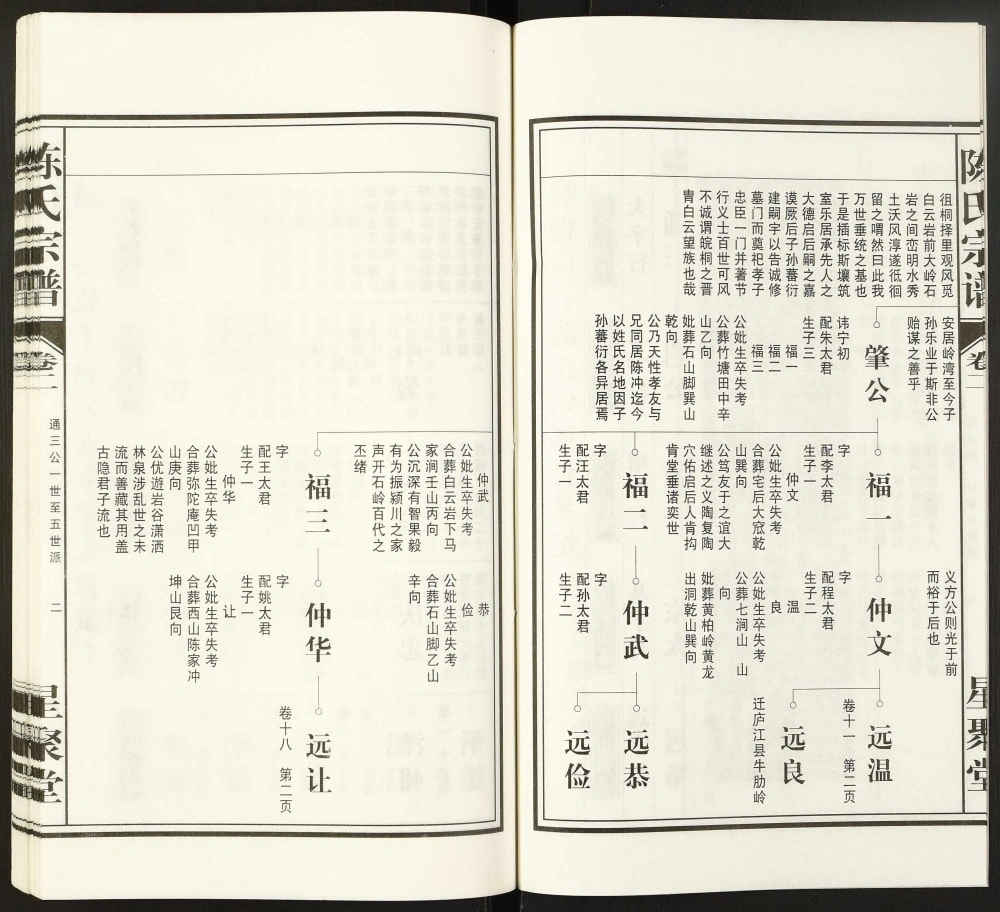 陈氏宗谱
卷二
星聚堂
徂桐择里观风觅
白云岩前大岭石
岩之间峦明水秀
土沃风淳遂徘徊
留之喟然曰此我
万世垂统之基也
于是插标斯壤筑
室乐居承先人之
大德启后嗣之嘉
谟厥后子孙蕃衍
建嗣宇以告诚修
墓门而奠祀孝子
忠臣一门并著节
行义士百世可风
不诚谓皖桐之晋
胄白云望族也哉
安居岭湾至今子
孙乐业于斯非公
贻谋之善乎
肇公
讳宁初
配朱太君
生子三
福一
福二
福三
公妣生卒失考
公葬竹塘田中辛
山乙向
妣葬石山脚巽山
乾向
公乃天性孝友与
兄同居陈冲迄今
以姓氏名地因子
孙蕃衍各异居焉
福一
字
配李太君
生子一
仲文
公妣生卒失考
合葬宅后大窊乾
山巽向
公笃友于之谊大
继述之义陶复陶
穴佑启后人肯抅
肯堂垂诸奕世
福二
字
配汪太君
生子一
义方公则光于前
而裕于后也
仲文
字
配程太君
生子二
温
良
公妣生卒失考
公葬七涧山　山
向
妣葬黄柏岭黄龙
出洞乾山巽向
仲武
字
配孙太君
生子二
远温
卷十一　第二页
远良
迁庐江县牛肋岭
远恭
远俭
仲武
公妣生卒失考
合葬白云岩下马
家涧壬山丙向
公沉深有智果毅
有为振颍川之家
声开石岭百代之
丕绪
福三
字
配王太君
生子一
仲华
公妣生卒失考
合葬弥陀庵凹甲
山庚向
公优遊岩谷潇洒
林泉涉乱世之末
流而善藏其用盖
古隐君子流也
恭
俭
公妣生卒失考
合葬石山脚乙山
辛向
仲华
字
配姚太君
生子一
让
公妣生卒失考
合葬西山陈家冲
坤山艮向
远让
卷十八　第二页
陈氏宗谱
卷二
通三公一世至五世派
二
星聚堂